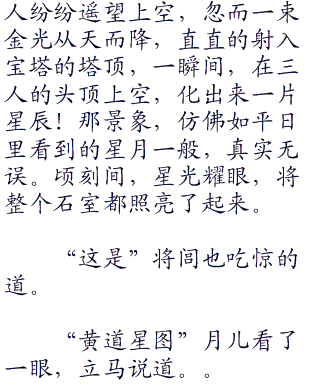 人纷纷遥望上空，忽而一束
金光从天而降，直直的射入
宝塔的塔顶，一瞬间，在三
人的头顶上空，化出来一片
星辰！那景象，仿佛如平日
里看到的星月一般，真实无
误。顷刻间，星光耀眼，将
整个石室都照亮了起来。
“这是”将闾也吃惊的
道。
“黄道星图”月儿看了
一眼，立马说道。。